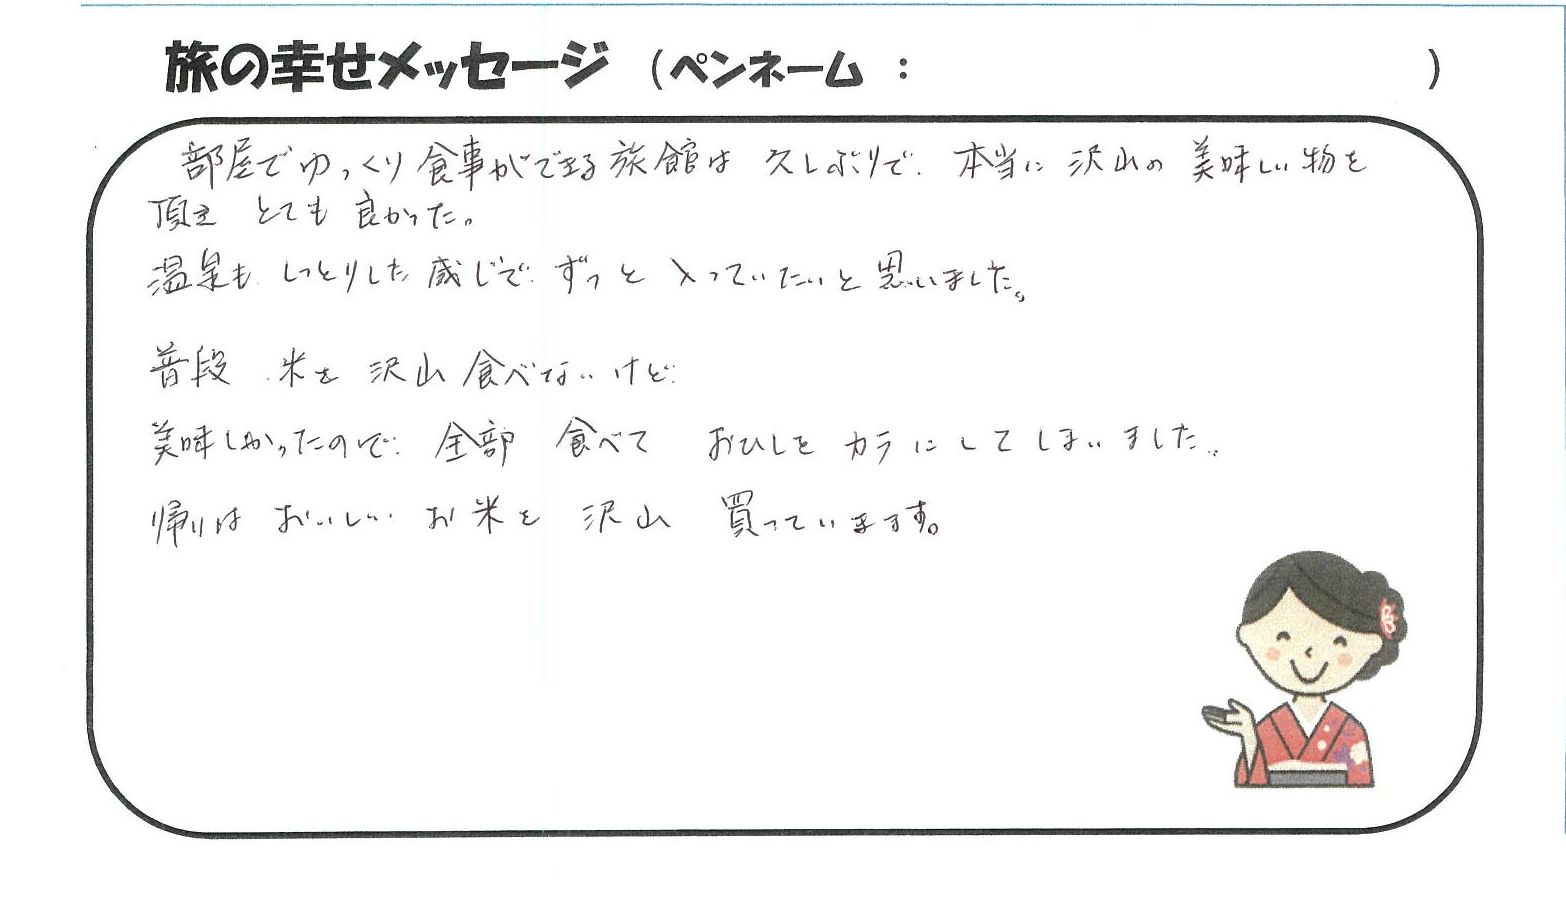 旅の幸せメッセージ (ペンネーム : )
部屋でゆっくり食事ができる旅館は 久しぶりで、本当に 沢山の 美味しい物を
頂き とても 良かった。
温泉も しっとりした 感じで ずっと 入っていたいと 思いました。
普段 米を 沢山 食べないけど
美味しかったので 全部 食べて おひつを カラにしてしまいました。
帰りは おいしい お米を 沢山 買っていきます。